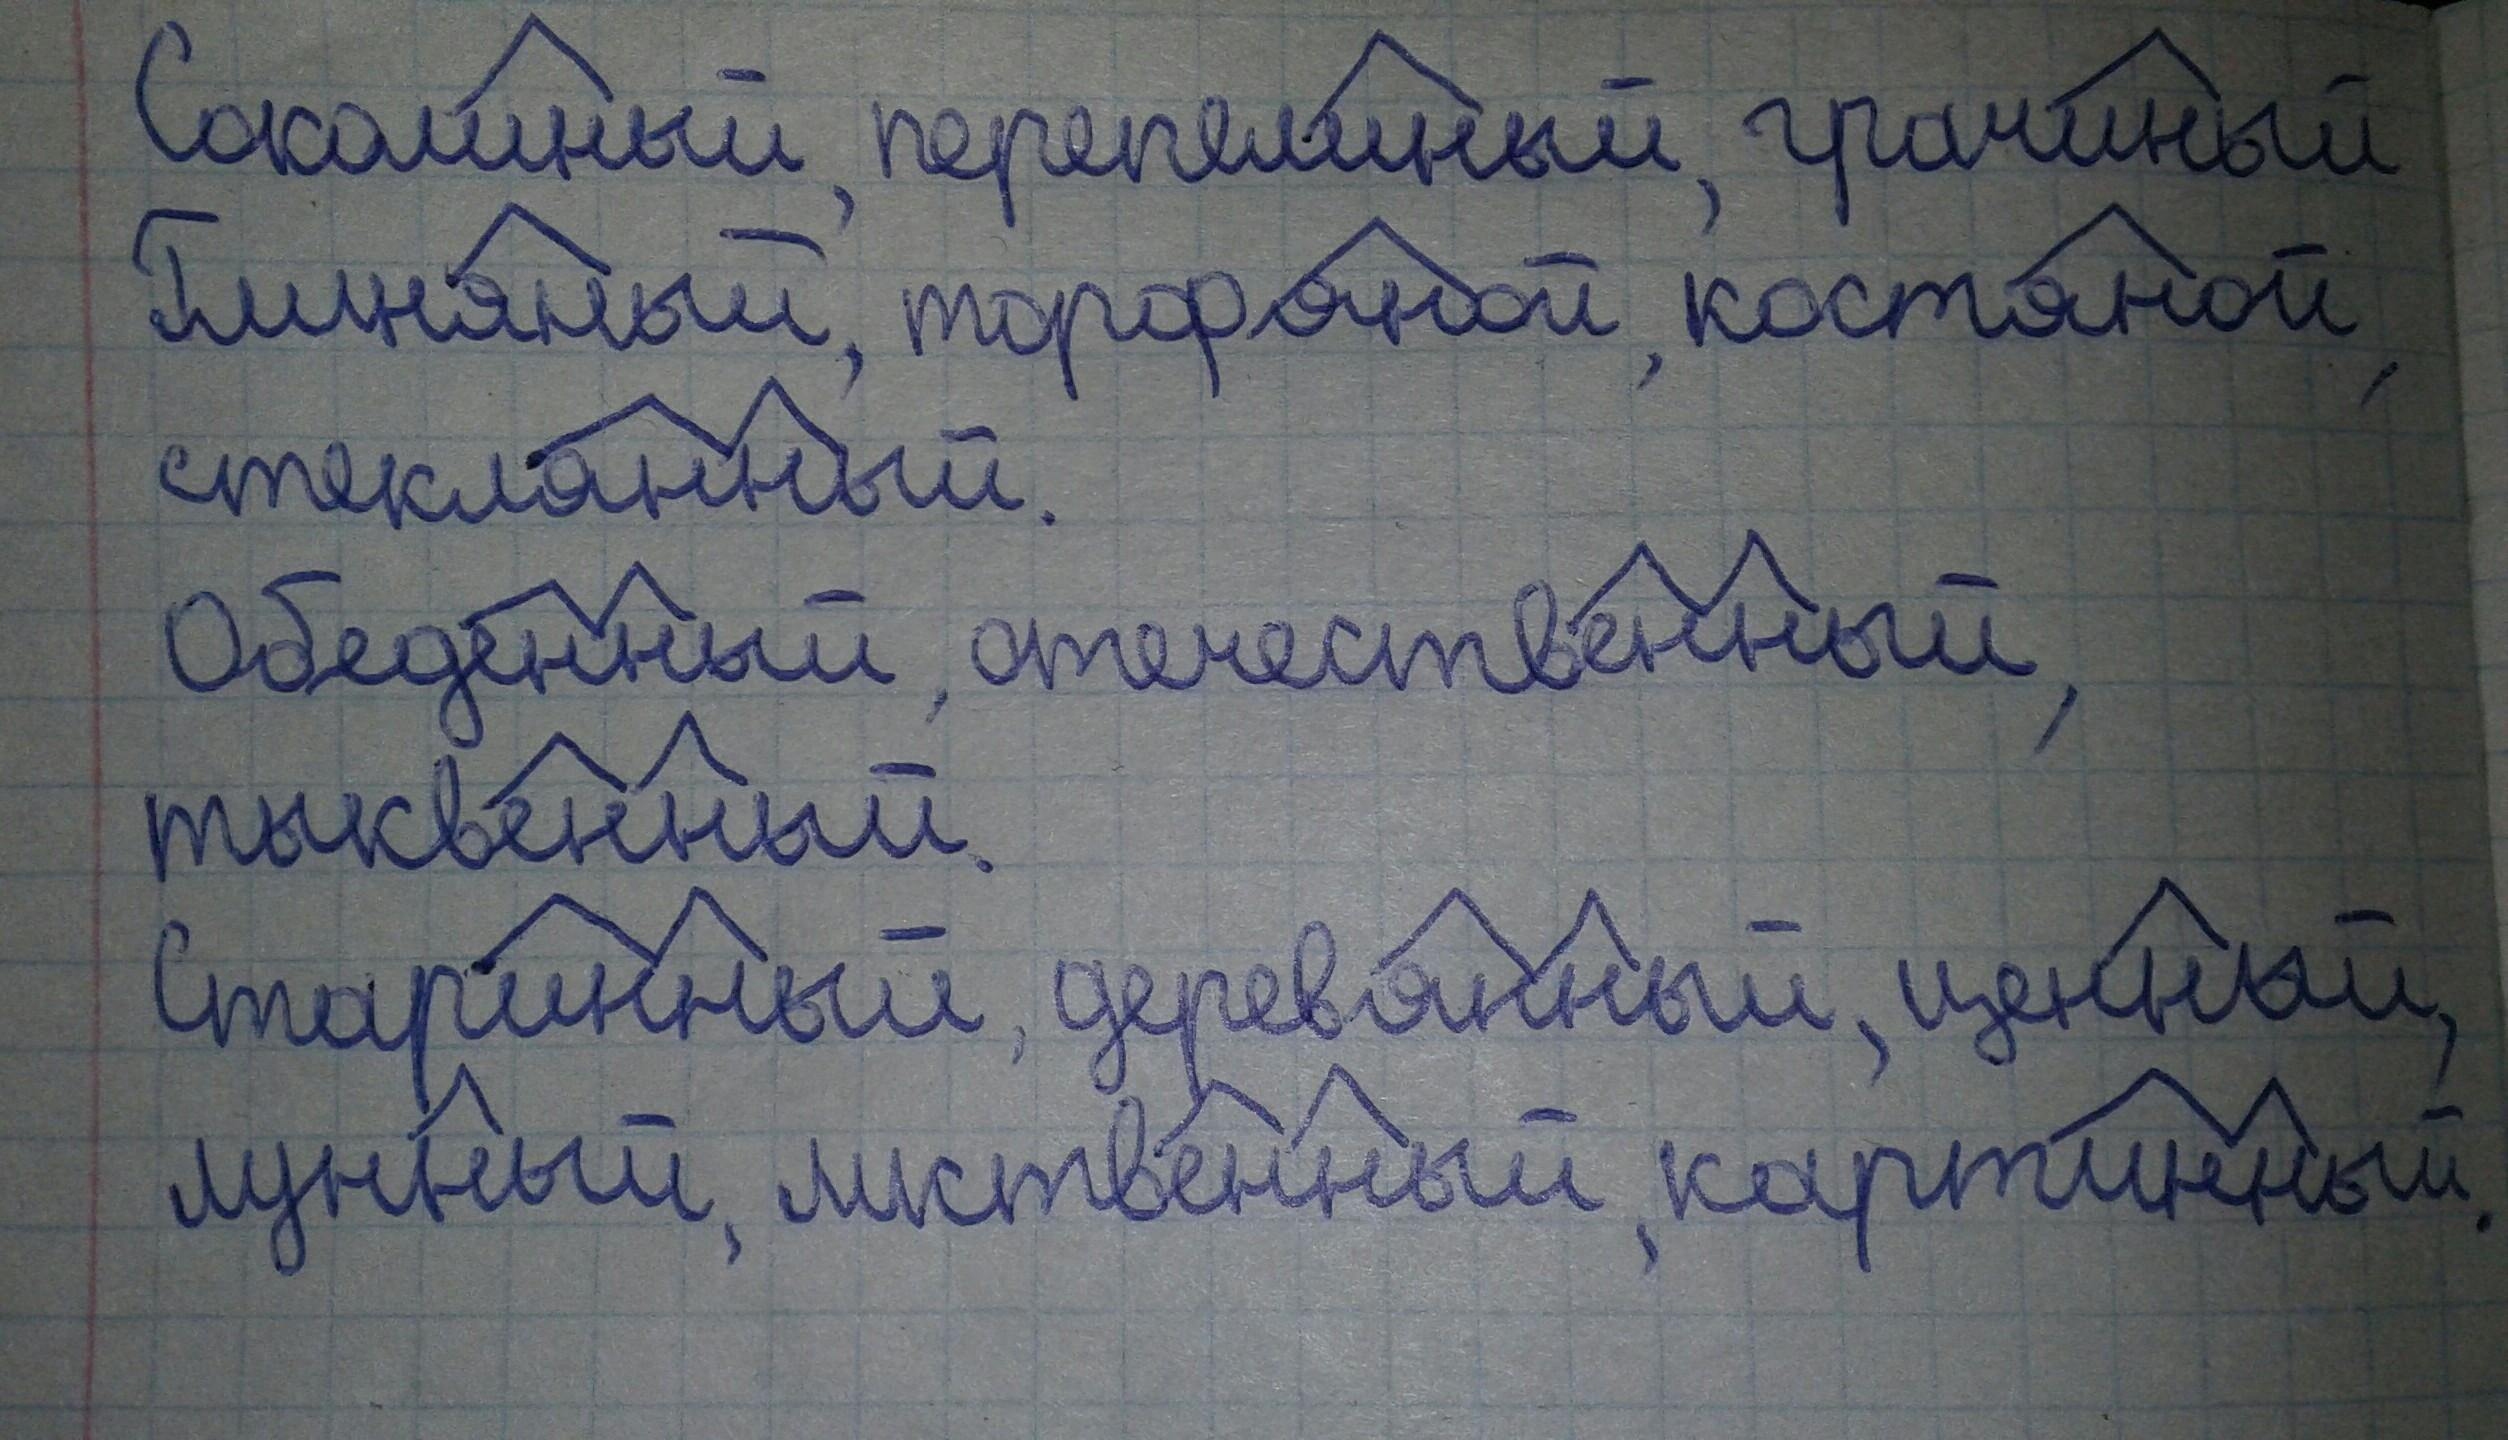 Соколиный, перепелиный, грачиный
Глиняный, торфяной, костяной,
стеклянный.
Обеденный, отечественный,
тыквенный.
Старинный, деревянный, ценный,
лунный, лиственный, картинный.